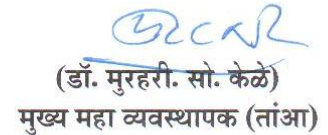 (डॉ. मुरहरी. सो. केळे)
मुख्य महा व्यवस्थापक (तांआ)